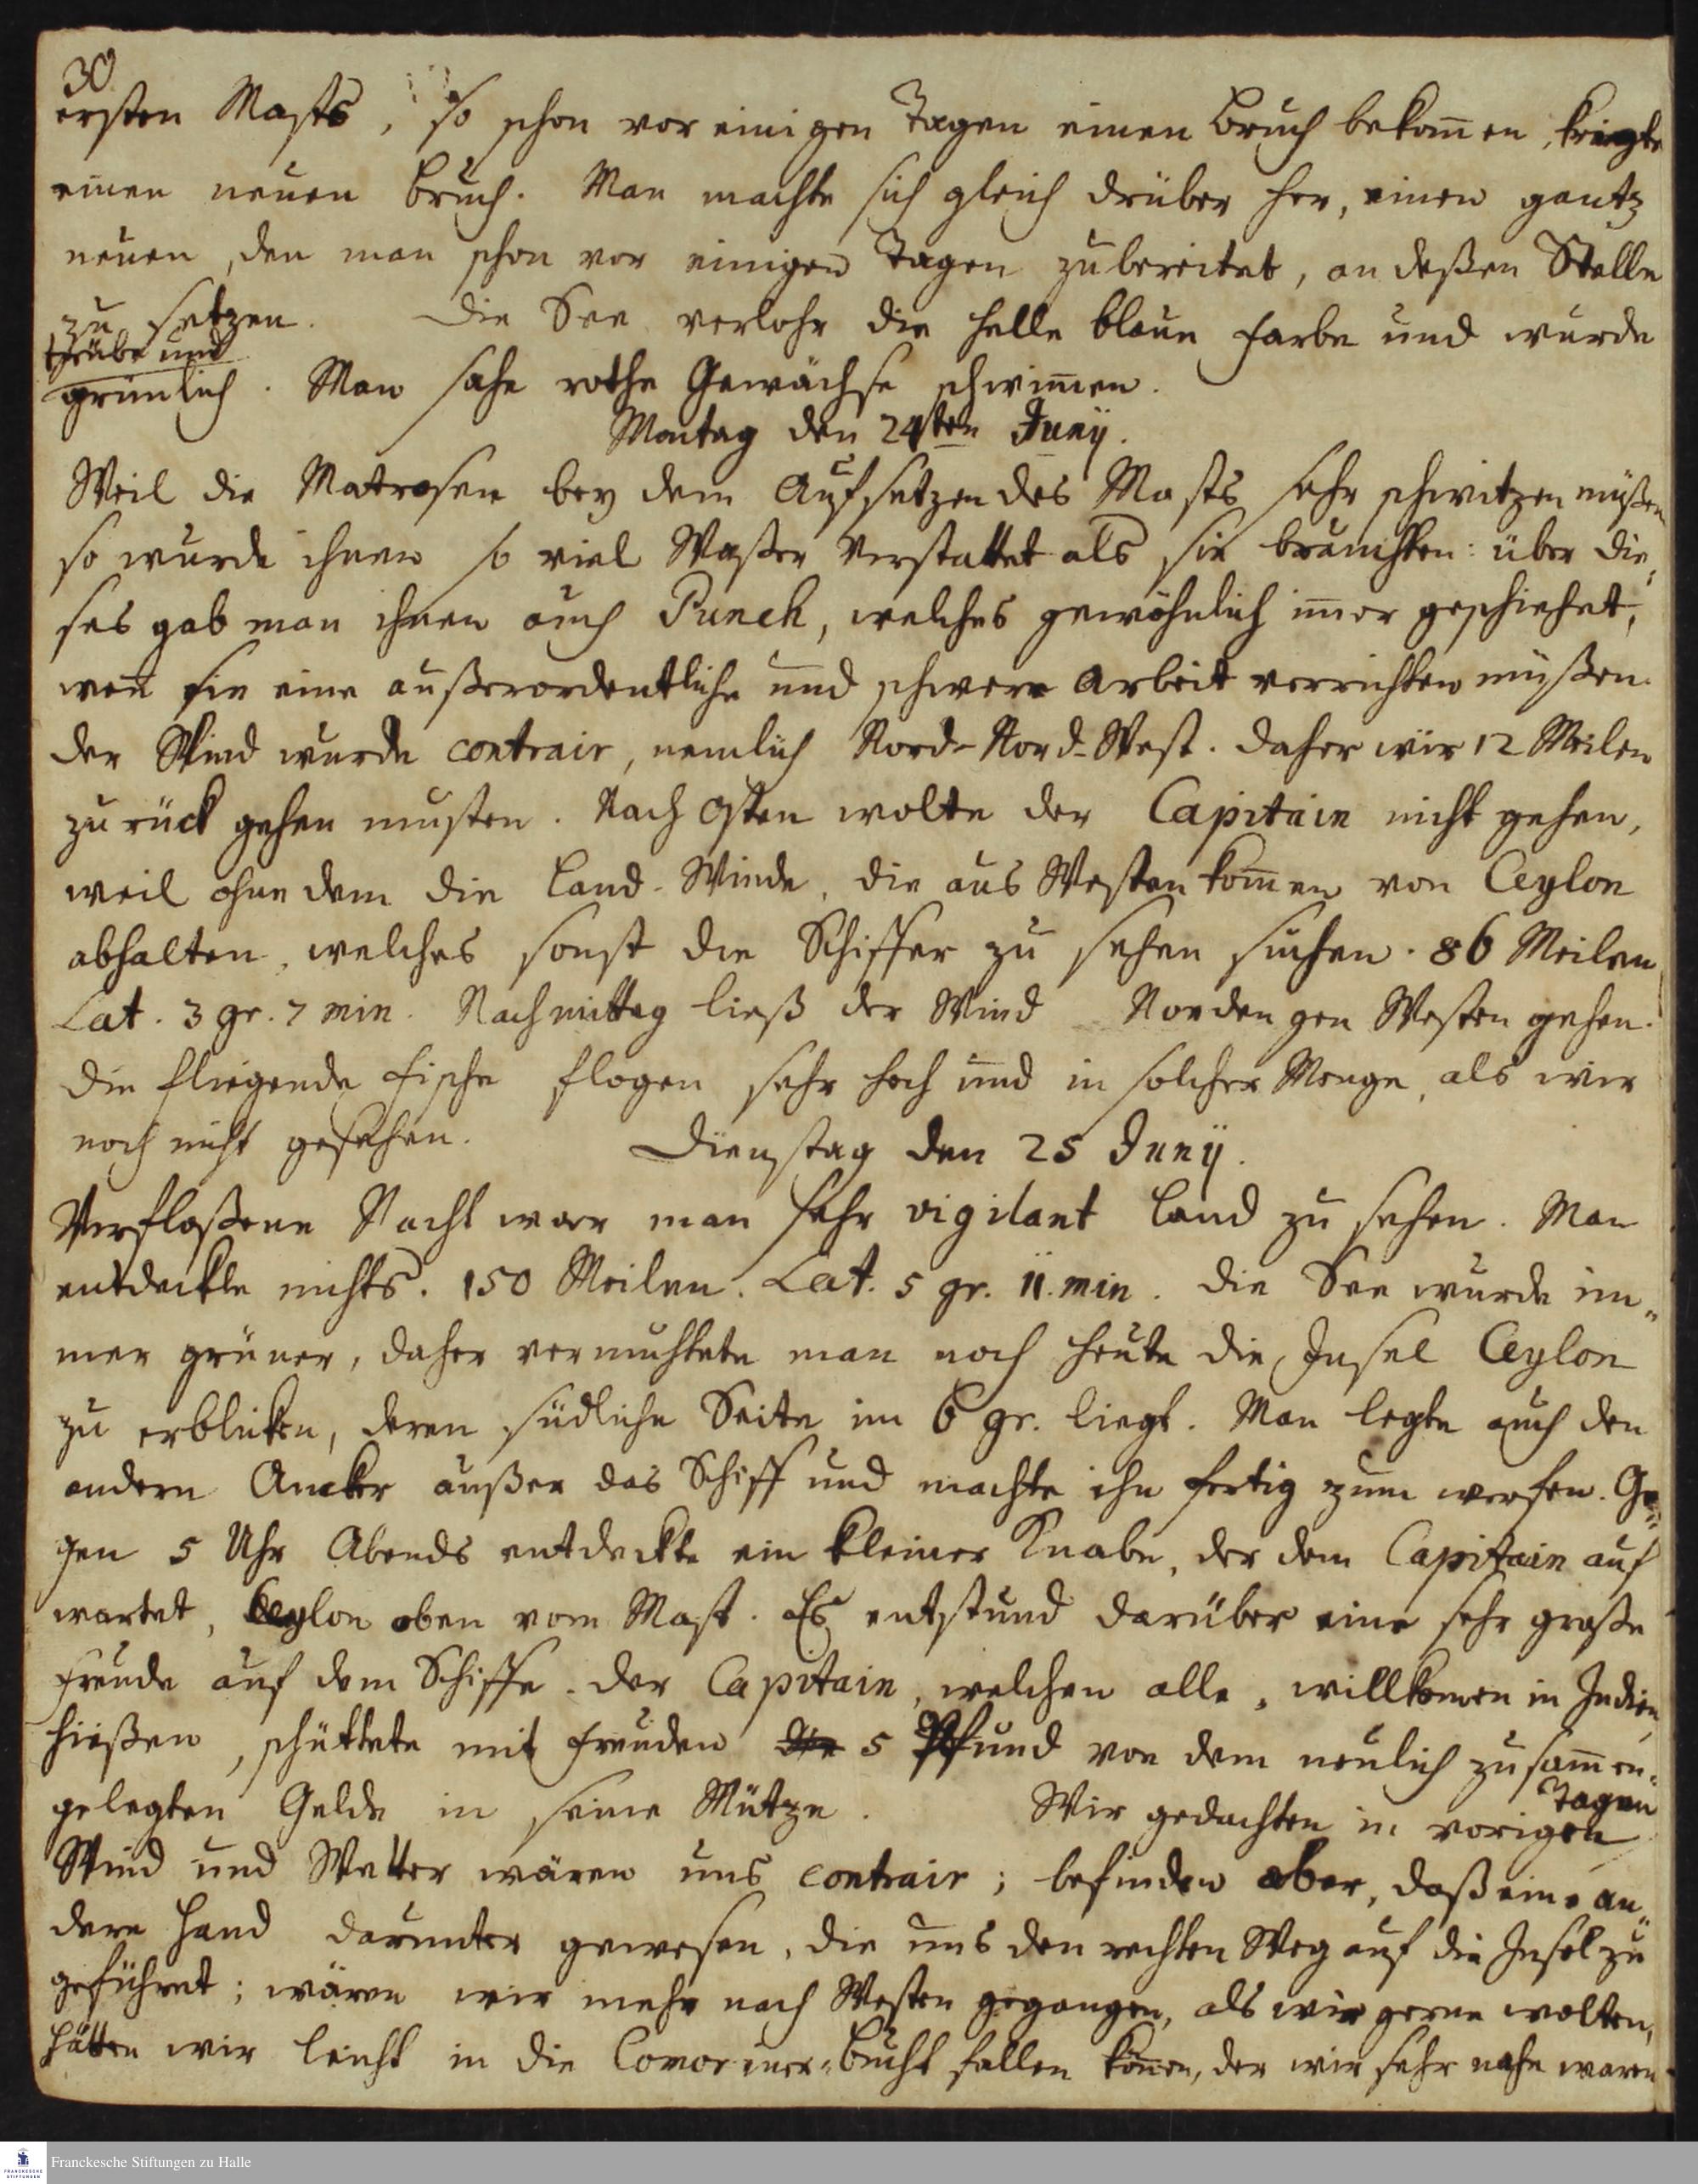 30
ersten Masts, so schon vor einigen Tagen einen Bruch bekom̄en, kriegte
einen neuen Bruch. Man machte sich gleich drüber her, einen gantz
neuen, den man schon vor einigen Tagen zubereitet, an deßen Stelle
zu setzen. Die See verlohr die helle blaue Farbe und wurde
trübe und
grünlich. Man sahe rothe Gewächse schwim̄en.
Montag den 24ten Junÿ.
Weil die Matrosen bey dem Aufsetzen des Masts sehr schwitzen müßen
so wurde ihnen so viel Waßer verstattet als sie brauchten: über die„
ses gab man ihnen auch Punch, welches gewöhnlich im̄er geschiehet,
wen̄ sie eine außerordentliche und schwere Arbeit verrichten müßen.
Der Wind wurde contrair, nemlich Nord-Nord-West. Daher wir 12 Meilen
zurück gehen musten. Nach Osten wolte der Capitain nicht gehen,
weil ohne dem die Land-Winde, die aus Westen kom̄en von Ceylon
abhalten, welches sonst die Schiffer zu sehen suchen. 86 Meilen
Lat. 3 gr. 7 min. Nachmittag ließ der Wind Norden gen Westen gehen.
Die fliegende Fische flogen sehr hoch und in solcher Menge, als wir
noch nicht gesehen.
Dienstag den 25 Junÿ.
Verfloßene Nacht war man sehr vigilant Land zu sehen. Man
entdeckte nichts. 150 Meilen. Lat. 5 gr. 11. min. Die See wurde im„
mer grüner, daher vermuhtete man noch heute die Insel Ceylon
zu erblicken, deren südliche Seite im 6 gr. liegt. Man legte auch den
andern Ancker außer das Schiff und machte ihn fertig zum werfen. Ge„
gen 5 Uhr Abends entdeckte ein kleiner Knabe, der dem Capitain auf
wartet, Ceylon oben vom Mast. Es entstund darüber eine sehr große
Freude auf dem Schiffe. Der Capitain, welchen alle, willkomen in Indien,
hießen, schüttete mit Freuden 5 Pfund von dem neulich zusam̄en„
gelegten Gelde in seine Mütze. Wir gedachten in vorigen
Tagen
Wind und Wetter wären uns contrair; befinden aber, daß eine an„
dere Hand darunter gewesen, die uns den rechten Weg auf die Insel zu
geführet; wären wir mehr nach Westen gegangen, als wir gerne wolten,
hätten wir leicht in die Comoriner-Bucht fallen kön̄en, der wir sehr nahe waren.
Franckesche Stiftungen zu Halle
FRANCKESCHE
STIFTUNGEN